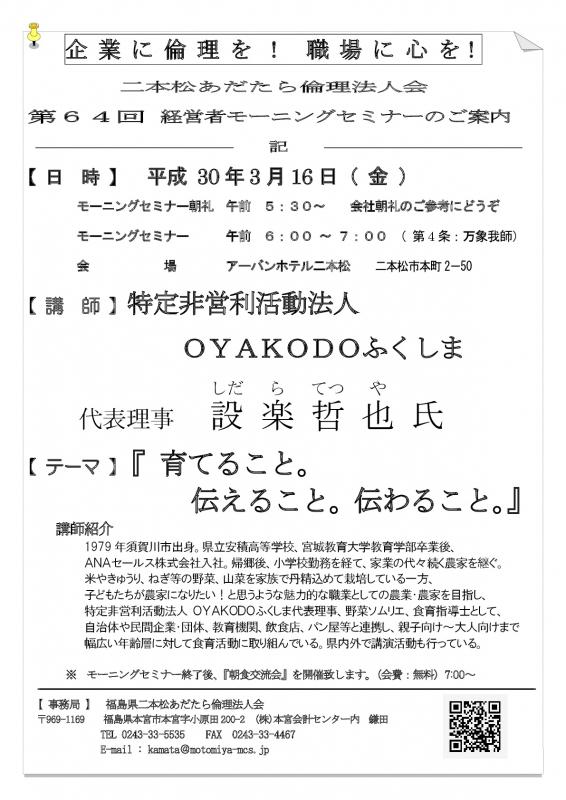 企業に倫理を！ 職場に心を！
二本松あだたら倫理法人会
第６４回 経営者モーニングセミナーのご案内
記
【 日 時 】 平成 30 年 3 月 16 日（ 金 ）
モーニングセミナー朝礼 午前 ５：３０～ 会社朝礼のご参考にどうぞ
モーニングセミナー 午前 ６：００ ～ ７：００ （ 第４条：万象我師）
会 場 アーバンホテル二本松 二本松市本町２－５０
【 講 師 】特定非営利活動法人
ＯＹＡＫＯＤＯふくしま
しだ ら てつ や
代表理事 設 楽 哲 也 氏
【 テーマ 】『 育てること。
伝えること。伝わること。』
講師紹介
1979 年須賀川市出身。県立安積高等学校、宮城教育大学教育学部卒業後、
ＡＮＡセールス株式会社入社。帰郷後、小学校勤務を経て、家業の代々続く農家を継ぐ。
米やきゅうり、ねぎ等の野菜、山菜を家族で丹精込めて栽培している一方、
子どもたちが農家になりたい！と思うような魅力的な職業としての農業・農家を目指し、
特定非営利活動法人 ＯＹＡＫＯＤＯふくしま代表理事、野菜ソムリエ、食育指導士として、
自治体や民間企業・団体、教育機関、飲食店、パン屋等と連携し、親子向け～大人向けまで
幅広い年齢層に対して食育活動に取り組んでいる。県内外で講演活動も行っている。
※ モーニングセミナー終了後、『朝食交流会』を開催致します。（会費：無料）７：００～
【 事務局 】 福島県二本松あだたら倫理法人会
〒969-1169 福島県本宮市本宮字小原田 200-2 （株）本宮会計センター内 鎌田
TEL 0243-33-5535 FAX 0243-33-4467
E-mail : kamata@motomiya-mcs.jp